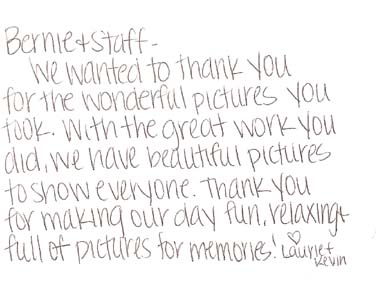 Bernie + Staff -
We wanted to thank you
for the wonderful pictures you
took. With the great work you
did, we have beautiful pictures
to show everyone. Thank you
for making our day fun, relaxing +
full of pictures for memories! ♡ Laurie +
Kevin